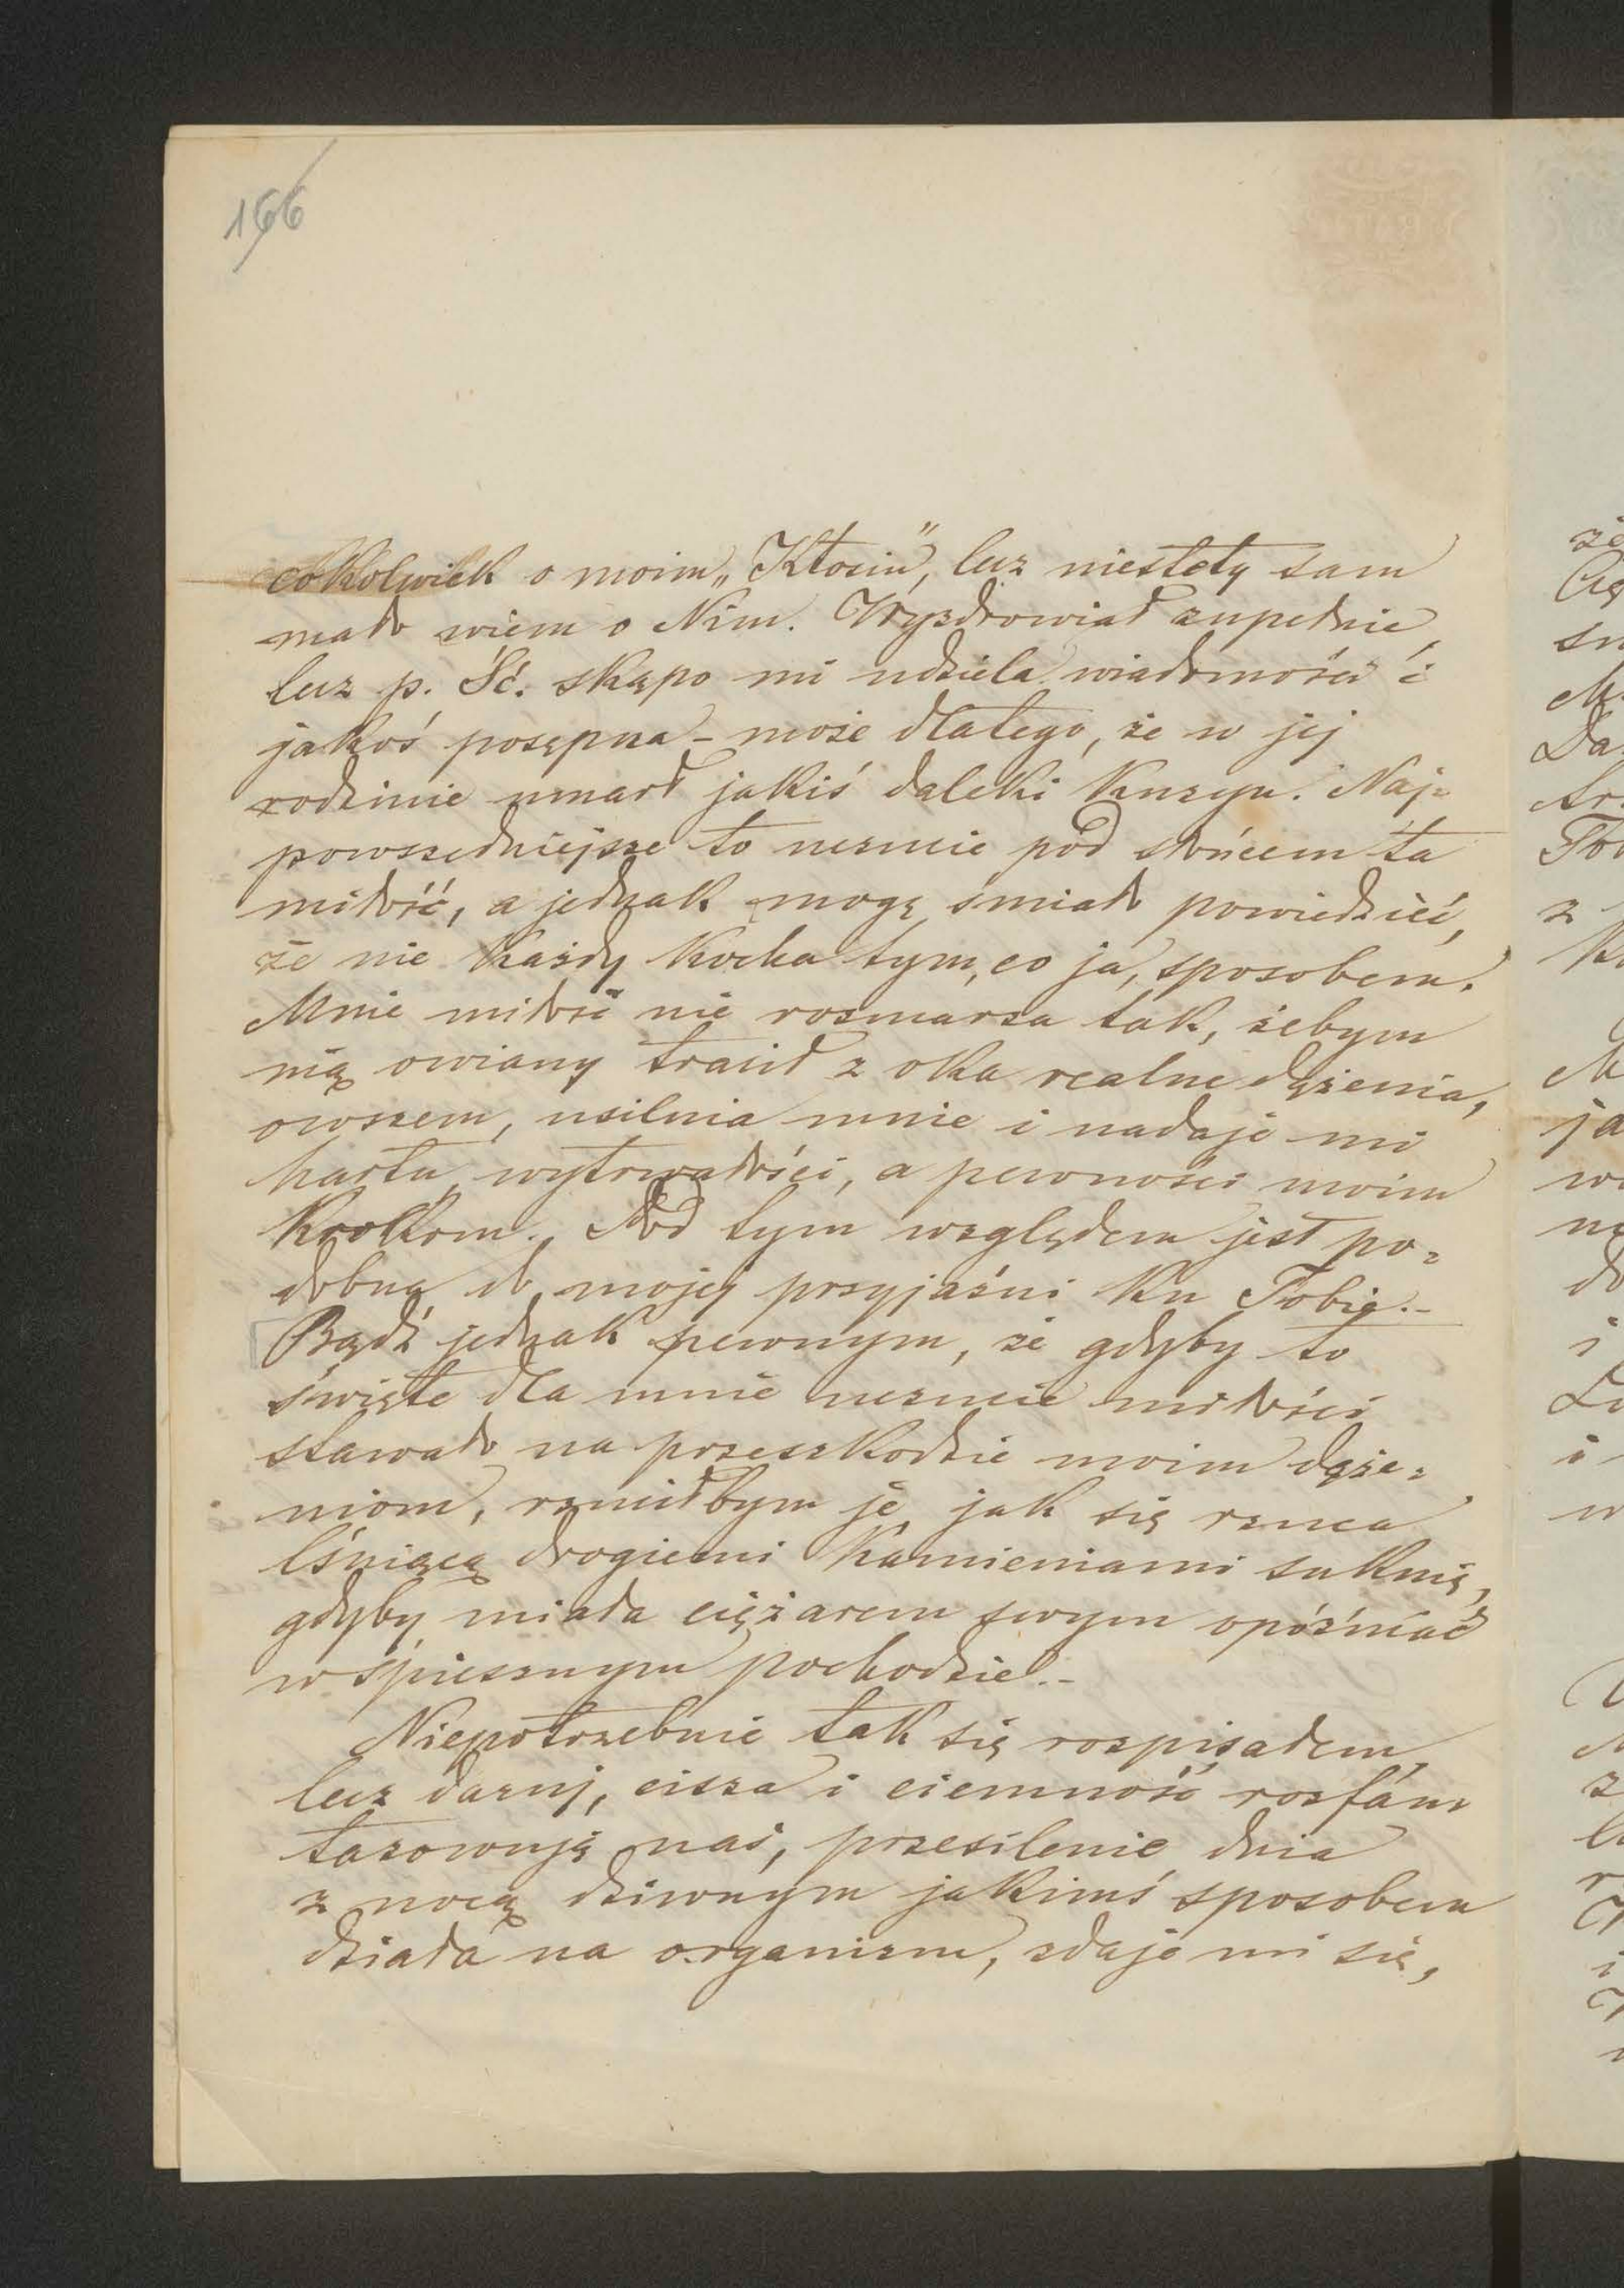 166
cokolwiek o moim „Kłosiu”, lecz niestety sam
mało wiem o Nim. Wyzdrowiał zupełnie,
lecz p.Ść. skąpo mi udziela wiadomości i
jakoś posępna - może dlatego, że w jej
rodzinie umarł jakiś daleki kuzyn. Naj-
powszedniejsze to uczucie pod słońcem ta
miłość, a jednak mogę śmiało powiedzieć,
że nie każdy kocha tym, co ja, sposobem.
Mnie miłość nie rozmarza tak, żebym
nią owiany tracił z oka realne dążenia,
owszem, usilnia mnie i nadaje mi
hartu, wytrwałości, a pewności moim
krokom. Pod tym względem jest po-
dobną do mojej przyjaźni ku Tobie.-
Bądź jednak pewnym, że gdyby to
święte dla mnie uczucie miłości
stawało na przeszkodzie moim dąże-
niom, rzuciłbym je, jak się rzuca
lśniącą drogiemi kamieniami suknię,
gdyby miała ciężarem swym opóźniać
w śpiesznym pochodzie.-
Niepotrzebnie tak się rozpisałem,
lecz daruj, cisza i ciemność rozfan-
tazowują nas, przesilenie dnia
z nocą dziwnym jakimś sposobem
działa na organizm, zdaje mi się,